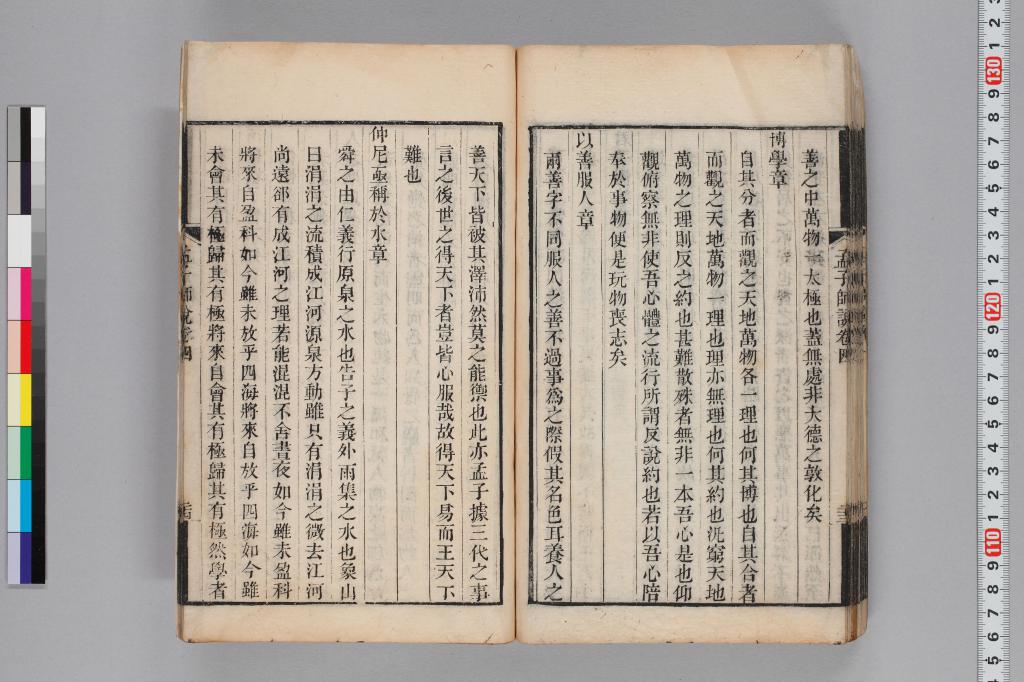 善之中萬物歸太極也蓋無處非大德之敦化矣
博學章
自其分者而觀之天地萬物各一理也何其博也自其合者
而觀之天地萬物一理也理亦無理也何其約也汎窮天地
萬物之理則反之約也甚難散殊者無非一本吾心是也仰
觀俯察無非使吾心體之流行所謂反說約也若以吾心陪
奉於事物便是玩物喪志矣
以善服人章
兩善字不同服人之善不過事爲之際假其名色耳養人之
孟子師說卷四
善天下皆被其澤沛然莫之能禦也此亦孟子據三代之事
言之後世之得天下者豈皆心服哉故得天下易而王天下
難也
仲尼亟稱於水章
舜之由仁義行原泉之水也告子之義外雨集之水也象山
曰涓涓之流積成江河源泉方動雖只有涓涓之微去江河
尚遠郤有成江河之理若能混混不舍晝夜如今雖未盈科
將來自盈科如今雖未放乎四海將來自放乎四海如今雖
未會其有極歸其有極將來自會其有極歸其有極然學者
孟子師說卷四